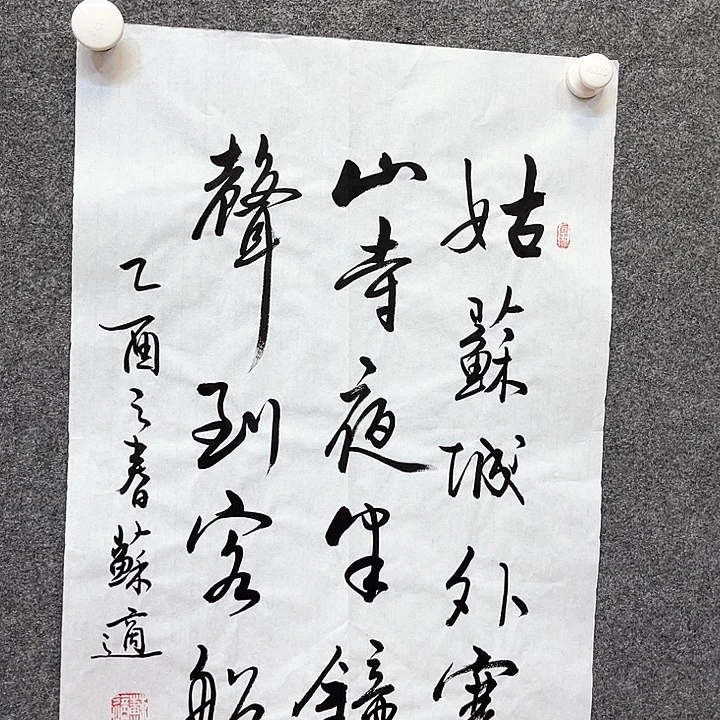 姑蘇城外寒
山寺夜半鐘
聲到客船
乙酉之春蘇適